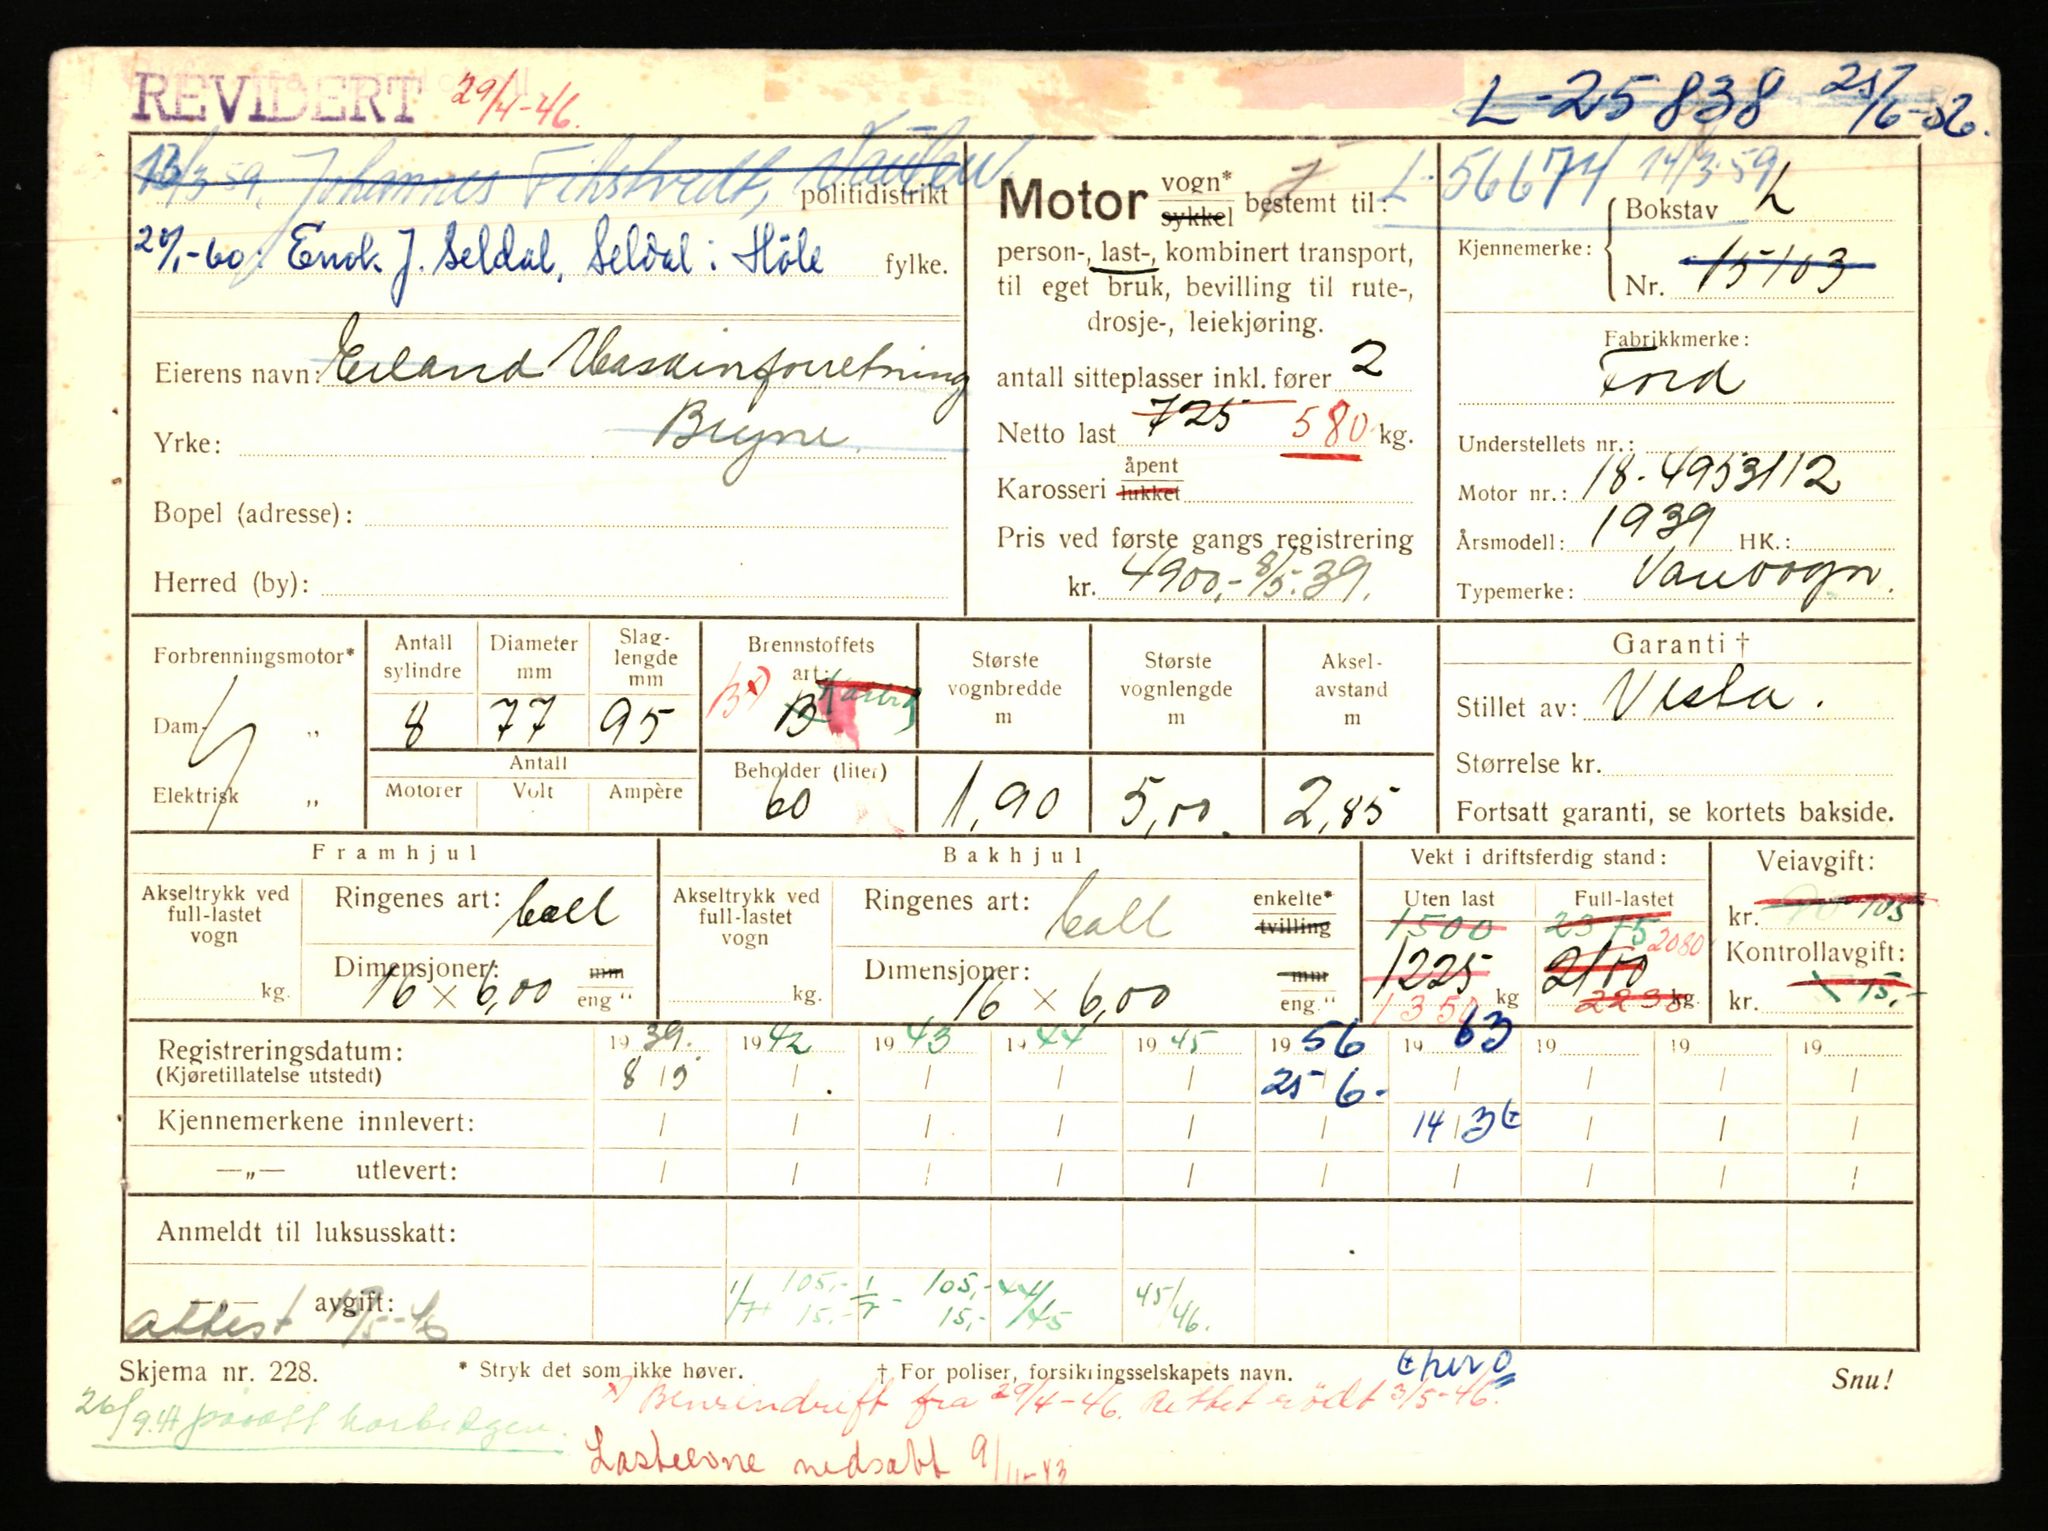 REVIDERT 29/4-46.
L-25838 25/6-56.
13/3 59. Johannes politidistrikt
20/1-60: J. Seldal, Seldal i Høle fylke.
Eierens navn: Erland Maskinforretning
Yrke: Bryne
Bopel (adresse):
Herred (by):
Motor vogn* sykkel bestemt til:
person-, last-, kombinert transport,
til eget bruk, bevilling til rute-,
drosje-, leiekjøring.
antall sitteplasser inkl. fører 2
Netto last 725 580 kg.
Karosseri åpent lukket
Pris ved første gangs registrering
kr. 4900,- 8/5-39.
L-56674 14/3-59
Kjennemerke: Bokstav L
Nr. 15103
Fabrikkmerke:
Ford
Understellets nr.:
Motor nr.: 18-4953112
Årsmodell: 1939 HK.:
Typemerke: Varevogn.
Forbrenningsmotor*
Dam- "
Elektrisk "
Antall sylindre 8
Diameter mm 77
Slaglengde mm 95
Antall
Motorer Volt Ampère
Brennstoffets art: B Karbid B x)
Beholder (liter) 60
Største vognbredde m 1,90
Største vognlengde m 5,00
Aksel-avstand m 2,85
Garanti †
Stillet av: Vesta.
Størrelse kr.
Fortsatt garanti, se kortets bakside.
Framhjul
Akseltrykk ved full-lastet vogn kg.
Ringenes art: ball
Dimensjoner: 16 × 6,00 mm eng "
Bakhjul
Akseltrykk ved full-lastet vogn kg.
Ringenes art: ball enkelte* tvilling
Dimensjoner: 16 × 6,00 mm eng. "
Vekt i driftsferdig stand:
Uten last 1500 1225 1350 kg
Full-lastet 2375 2080 2150 2238 kg.
Veiavgift:
kr. 105
Kontrollavgift:
kr. 15,-
Registreringsdatum: 1939. 1942 1943 1944 1945 1956 1963 19 19 19
(Kjøretillatelse utstedt) 8/5 / / / / 25/6- / / / /
Kjennemerkene innlevert: / / / / / / 14/3 / / /
—„— utlevert: / / / / / / / / / /
Anmeldt til luksusskatt:
—„— avgift: 1/7 105,- 15,- 1/7 - 105,- 15,- 44/45 45/46.
attest
Skjema nr. 228.
* Stryk det som ikke høver.
† For poliser, forsikringsselskapets navn.
Snu!
x) Bensindrift fra 29/4-46. Rettet rødt 3/5-46.
Lasteevne nedsatt 9/11-43